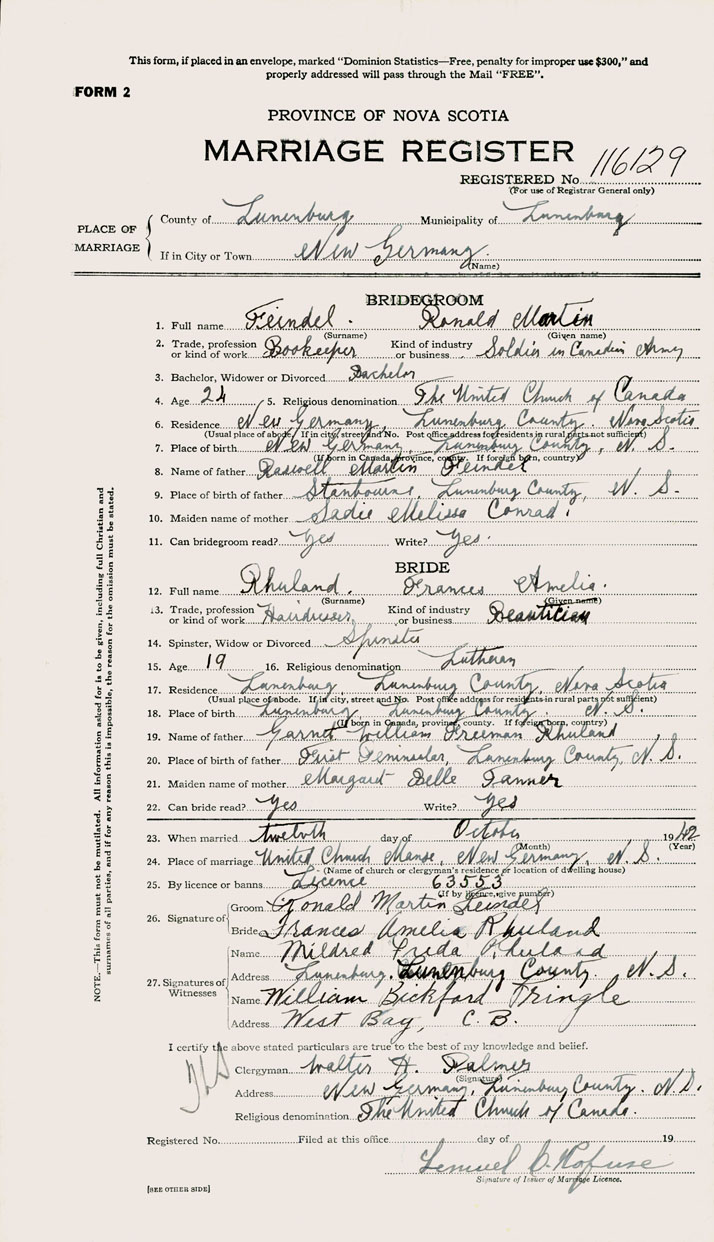 This form, if placed in an envelope, marked “Dominion Statistics—Free, penalty for improper use $300,” and
properly addressed will pass through the Mail “FREE”.
FORM 2
PROVINCE OF NOVA SCOTIA
MARRIAGE REGISTER
REGISTERED No. 116129
(For use of Registrar General only)
PLACE OF MARRIAGE
County of Lunenburg Municipality of Lunenburg
If in City or Town New Germany.
(Name)
BRIDEGROOM
1. Full name Feindel. Ronald Martin
(Surname) (Given name)
2. Trade, profession or kind of work Bookeeper Kind of industry or business Soldier in Canadian Army
3. Bachelor, Widower or Divorced Bachelor
4. Age 24 5. Religious denomination The United Church of Canada
6. Residence New Germany, Lunenburg County. Nova Scotia
(Usual place of abode. If in city, street and No. Post office address for residents in rural parts not sufficient)
7. Place of birth New Germany, Lunenburg County, N. S.
(If born in Canada, province, county. If foreign born, country)
8. Name of father Martin Feindel
9. Place of birth of father Lunenburg County, N. S.
10. Maiden name of mother Sadie Melissa Conrad.
11. Can bridegroom read? Yes Write? Yes.
BRIDE
12. Full name Rhuland. Frances Amelia.
(Surname) (Given name)
13. Trade, profession or kind of work Hairdresser Kind of industry or business Beautician
14. Spinster, Widow or Divorced Spinster
15. Age 19 16. Religious denomination Lutheran
17. Residence Lunenburg, Lunenburg County, Nova Scotia
(Usual place of abode. If in city, street and No. Post office address for residents in rural parts not sufficient)
18. Place of birth Lunenburg, Lunenburg County. N. S.
(If born in Canada, province, county. If foreign born, country)
19. Name of father Garnet William Freeman Rhuland
20. Place of birth of father First Peninsular, Lunenburg County, N. S.
21. Maiden name of mother Margaret Belle Tanner
22. Can bride read? Yes Write? Yes
23. When married twelvth day of October 1942
(Month) (Year)
24. Place of marriage United Church Manse, New Germany, N. S.
(Name of church or clergyman's residence or location of dwelling house)
25. By licence or banns Licence 63553
(If by licence, give number)
26. Signature of Groom Ronald Martin Feindel
Bride Frances Amelia Rhuland
27. Signatures of Witnesses Name Mildred Frida Rhuland
Address Lunenburg. Lunenburg County. N. S.
Name William Bickford Pringle
Address West Bay, C. B.
I certify the above stated particulars are true to the best of my knowledge and belief.
Clergyman Walter H. Palmer
(Signature)
Address New Germany, Lunenburg County. N. S.
Religious denomination The United Church of Canada.
Registered No. Filed at this office day of 19
Lemuel
Signature of Issuer of Marriage Licence.
[SEE OTHER SIDE]
NOTE.—This form must not be mutilated. All information asked for is to be given, including full Christian and
surnames of all parties, and if for any reason this is impossible, the reason for the omission must be stated.